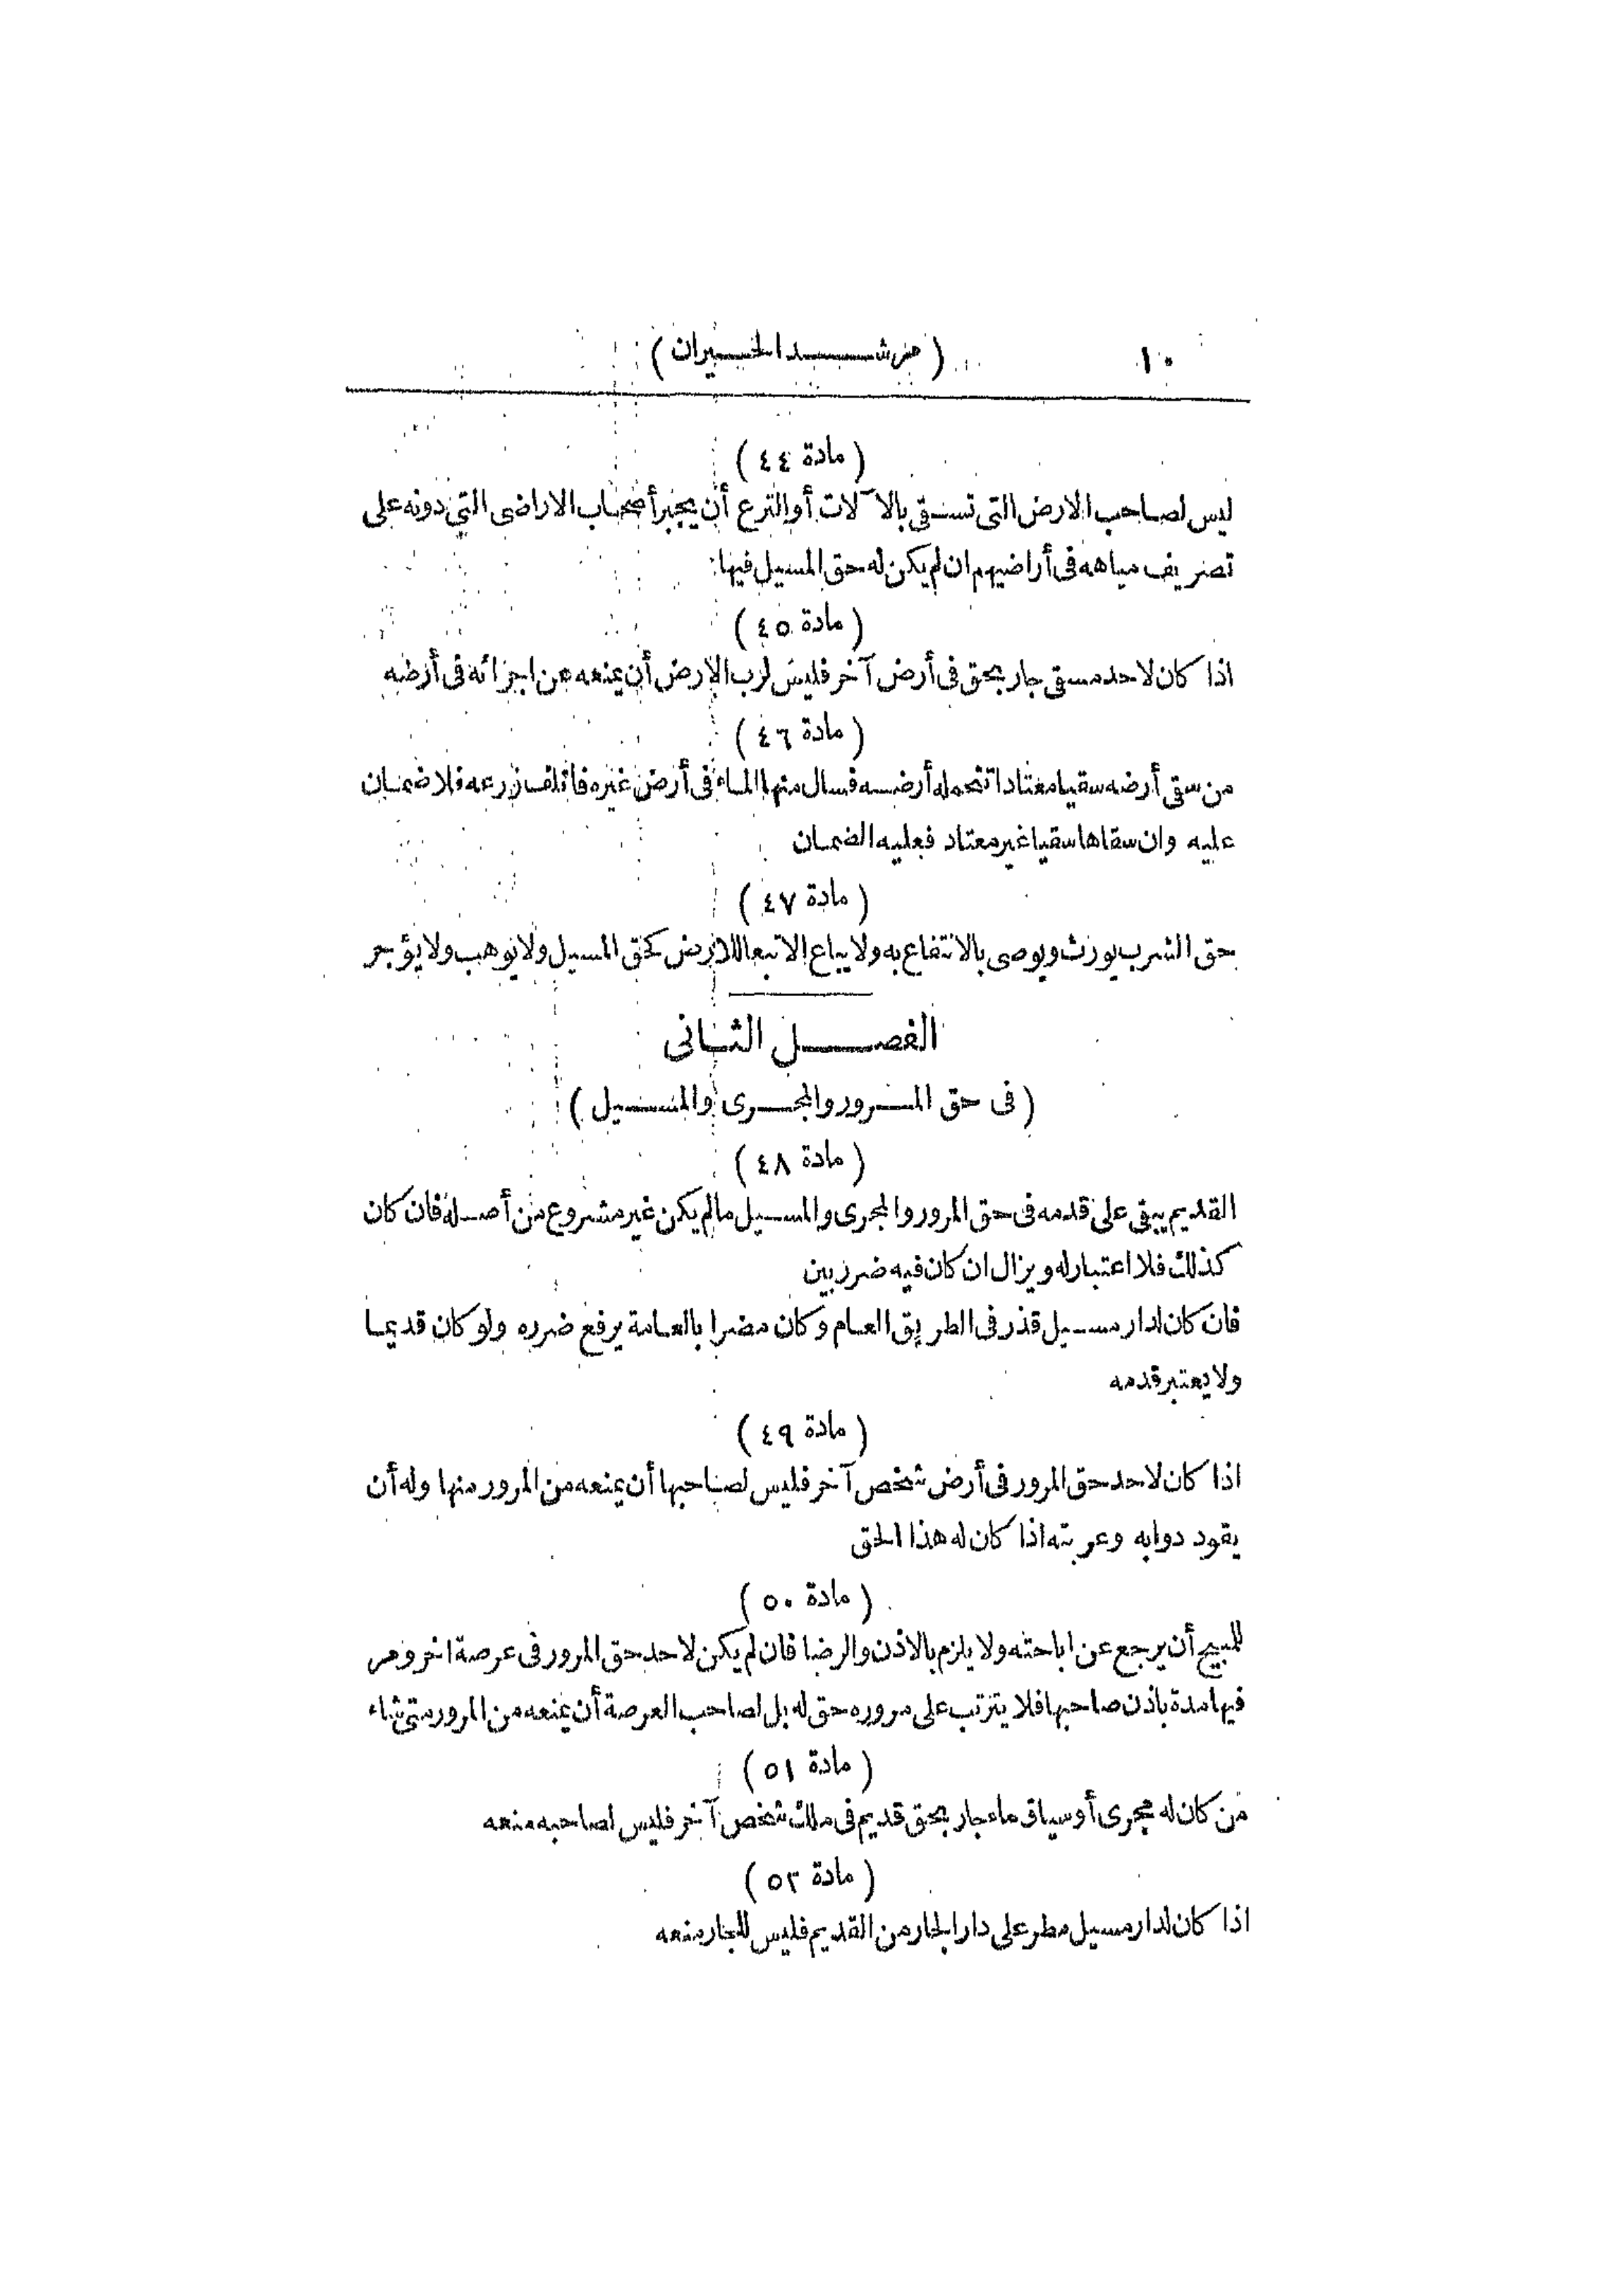 ١٠ (مرشد الحيران)
(مادة ٤٤)
ليس لصاحب الارض التى تسقى بالآلات أو الترع أن يجبر أصحاب الاراضى التى دونه على
تصريف مياهه فى أراضيهم ان لم يكن له حق المسيل فيها
(مادة ٤٥)
اذا كان لاحد مسقى جار بحق فى أرض آخر فليس لرب الارض أن يمنعه من اجرائه فى أرضه
(مادة ٤٦)
من سقى أرضه سقيا معتادا تتحمله أرضه فسال منها الماء فى أرض غيره فاتلف زرعه فلا ضمان
عليه وان سقاها سقيا غير معتاد فعليه الضمان
(مادة ٤٧)
حق الشرب يورث ويوصى بالانتفاع به ولا يباع الا تبعا للارض كحق المسيل ولا يوهب ولا يؤجر
الفصل الثانى
(فى حق المرور والمجرى والمسيل)
(مادة ٤٨)
القديم يبقى على قدمه فى حق المرور والمجرى والمسيل مالم يكن غير مشروع من أصله فان كان
كذلك فلا اعتبار له ويزال ان كان فيه ضرر بين
فان كان لدار مسيل قذر فى الطريق العام وكان مضرا بالعامة يرفع ضرره ولو كان قديما
ولا يعتبر قدمه
(مادة ٤٩)
اذا كان لاحد حق المرور فى أرض شخص آخر فليس لصاحبها أن يمنعه من المرور منها وله أن
يقود دوابه وعربته اذا كان له هذا الحق
(مادة ٥٠)
للمبيح أن يرجع عن اباحته ولا يلزم بالاذن والرضا فان لم يكن لاحد حق المرور فى عرصة اخر ومر
فيها مدة باذن صاحبها فلا يترتب على مروره حق له بل لصاحب العرصة أن يمنعه من المرور متى شاء
(مادة ٥١)
من كان له مجرى أو سياق ماء جار بحق قديم فى ملك شخص آخر فليس لصاحبه منعه
(مادة ٥٢)
اذا كان لدار مسيل مطر على دار الجار من القديم فليس للجار منعه